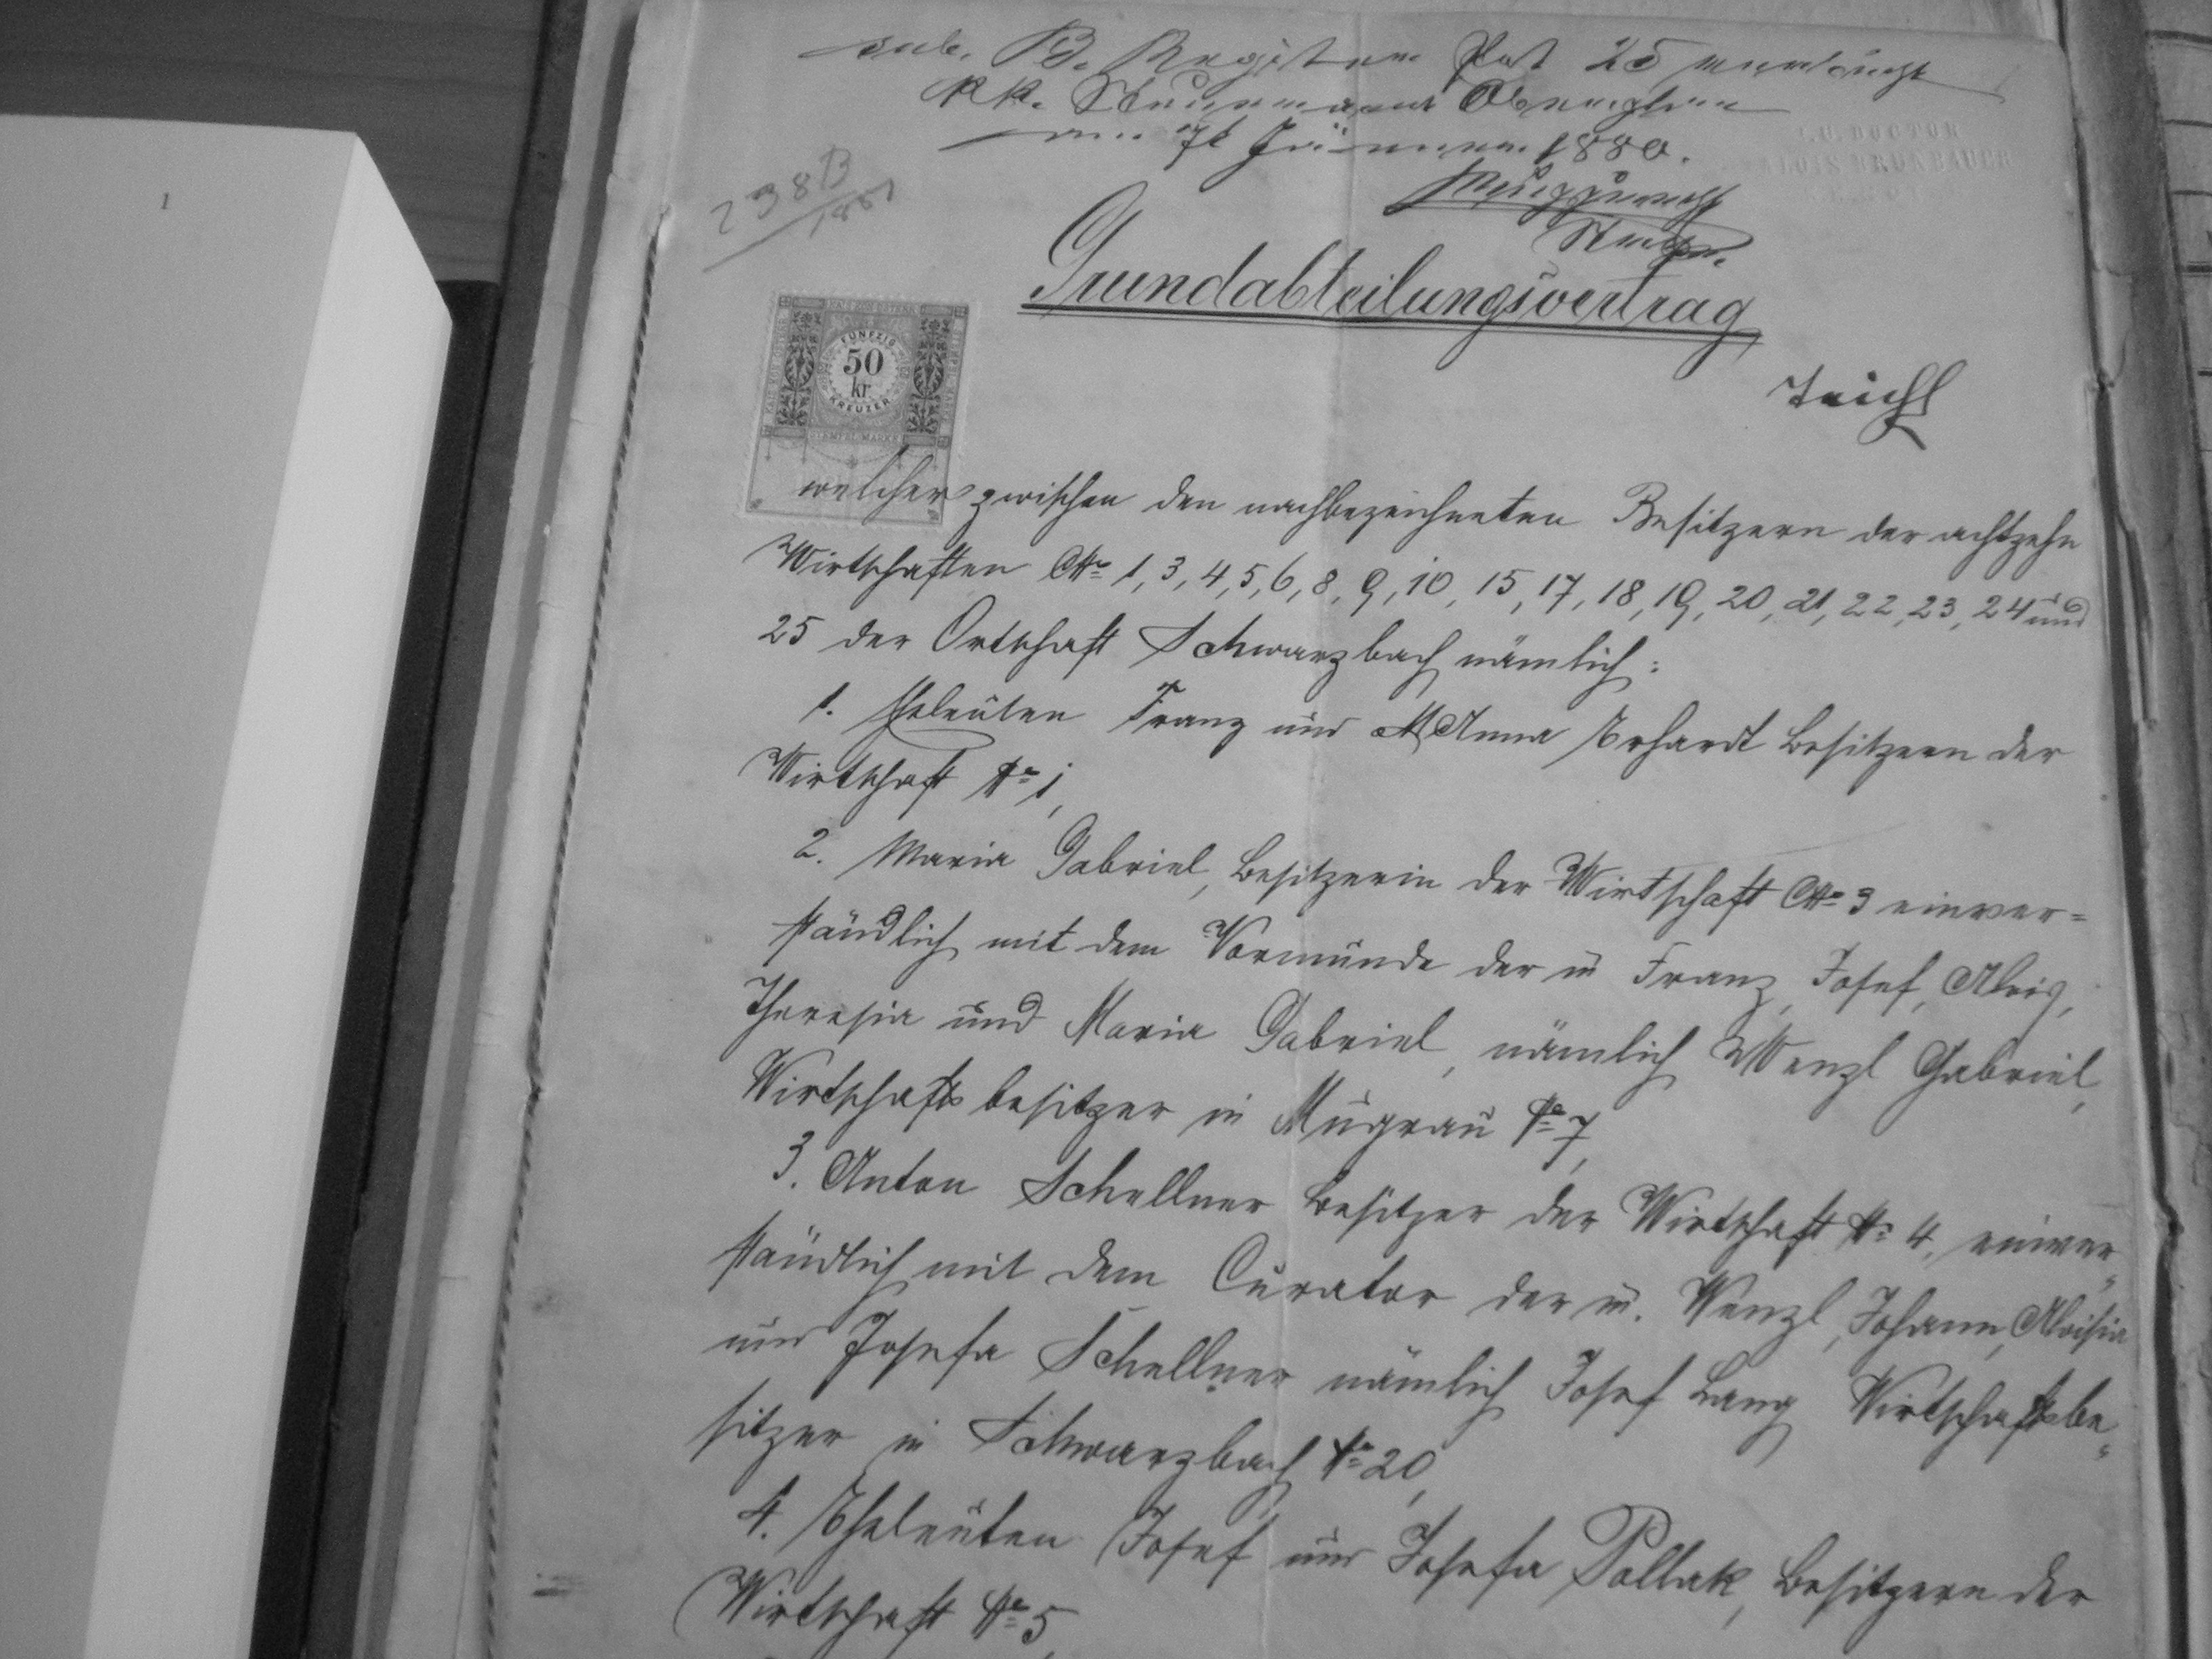 sub. B. Register Post 25
kk. Steueramt Oberplan
am 7t Jänner 1880.
238B
1881
J.U. DOCTOR
ALOIS BRUNBAUER
Grundabteilungsvertrag
FÜNFZIG
50
kr
KREUZER
STEMPEL MARKE
welcher zwischen den nachbezeichneten Besitzern der achtzehn
Wirtschaften No 1, 3, 4, 5, 6, 8, 9, 10, 15, 17, 18, 19, 20, 21, 22, 23, 24 und
25 der Ortschaft Schwarzbach nämlich:
1. Eheleuten Franz und M Anna Erhardt Besitzern der
Wirtschaft No 1,
2. Maria Gabriel, Besitzerin der Wirtschaft No 3 einver=
ständlich mit dem Vormunde der m Franz, Josef, Alois,
Theresia und Maria Gabriel, nämlich Wenzl Gabriel,
Wirtschaftsbesitzer in Mugrau No 7,
3. Anton Schellner Besitzer der Wirtschaft No 4, einver=
ständlich mit dem Curator der m. Wenzl, Johann, Aloisia
und Josefa Schellner nämlich Josef Lang Wirtschaftsbe=
sitzer in Schwarzbach No 20,
4. Eheleuten Josef und Josefa Pollak, Besitzern der
Wirtschaft No 5,
1